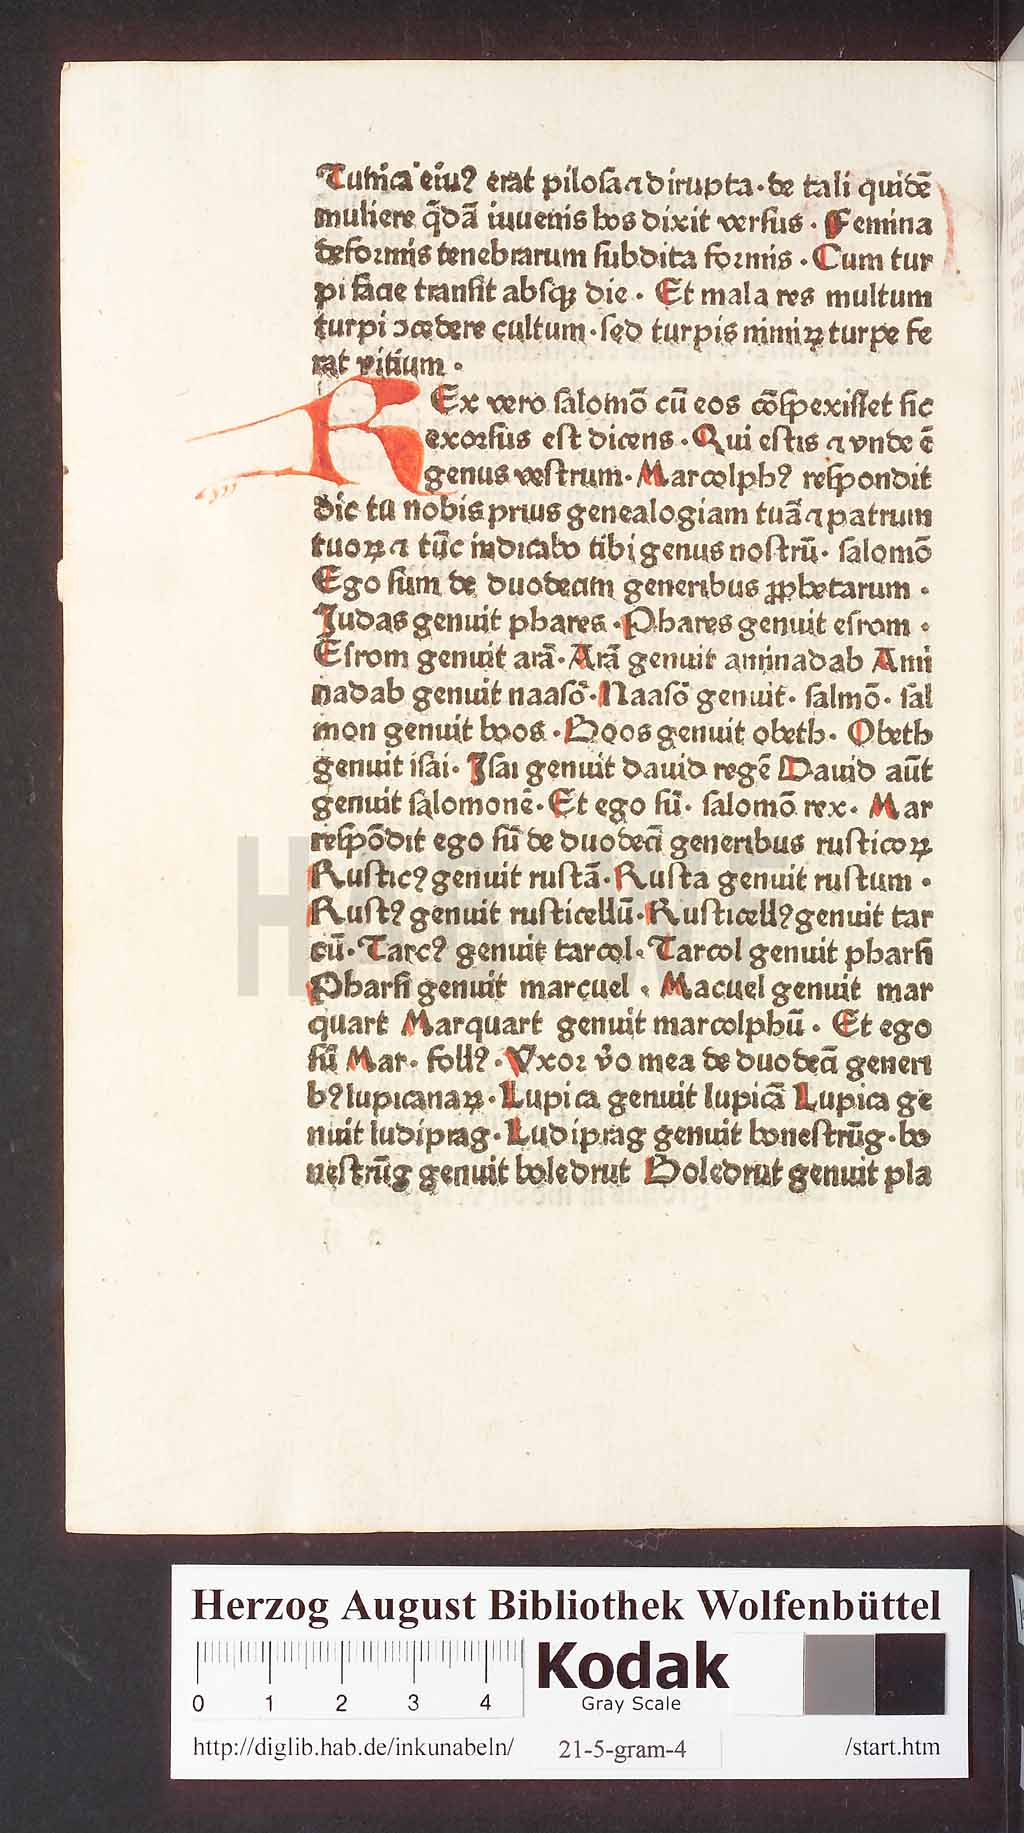 Tunica eiuꝰ erat pilosa ⁊ dirupta · de tali quidē
muliere q̄dā iuuenis hos dixit versus · Femina
deformis tenebrarum subdita formis · Cum tur
pi facie transit absqꝫ die · Et mala res multum
turpi ↄcedere cultum · sed turpis nimiꝝ turpe fe
rat vitium ·
REx vero salomō cū eos cōspexisset sic
exorsus est dicens · Qui estis ⁊ vnde ē
genus vestrum · Marcolphꝰ respondit
dic tu nobis prius genealogiam tuā ⁊ patrum
tuoꝝ ⁊ tūc indicabo tibi genus nostrū · salomō
Ego sum de duodecim generibus ꝓphetarum ·
Judas genuit phares · Phares genuit esrom ·
Esrom genuit arā · Arā genuit aminadab Ami
nadab genuit naasō · Naasō genuit · salmō · sal
mon genuit boos · Boos genuit obeth · Obeth
genuit isai · Jsai genuit dauid regē Dauid aūt
genuit salomonē · Et ego sū · salomō rex · Mar
respōdit ego sū de duodecī generibus rusticoꝝ
Rusticꝰ genuit rustā · Rusta genuit rustum ·
Rustꝰ genuit rusticellū · Rusticellꝰ genuit tar
cū · Tarcꝰ genuit tarcol · Tarcol genuit pharsi
Pharsi genuit marcuel · Macuel genuit mar
quart Marquart genuit marcolphū · Et ego
sū Mar · follꝰ · Vxor v̊o mea de duodecī generi
bꝰ lupicanaꝝ · Lupica genuit lupicā Lupica ge
nuit ludiprag · Ludiprag genuit bonestrūg · bo
nestrūg genuit boledrut Boledrut genuit pla
HAB WF
Herzog August Bibliothek Wolfenbüttel
0 1 2 3 4
Kodak
Gray Scale
http://diglib.hab.de/inkunabeln/ 21-5-gram-4 /start.htm